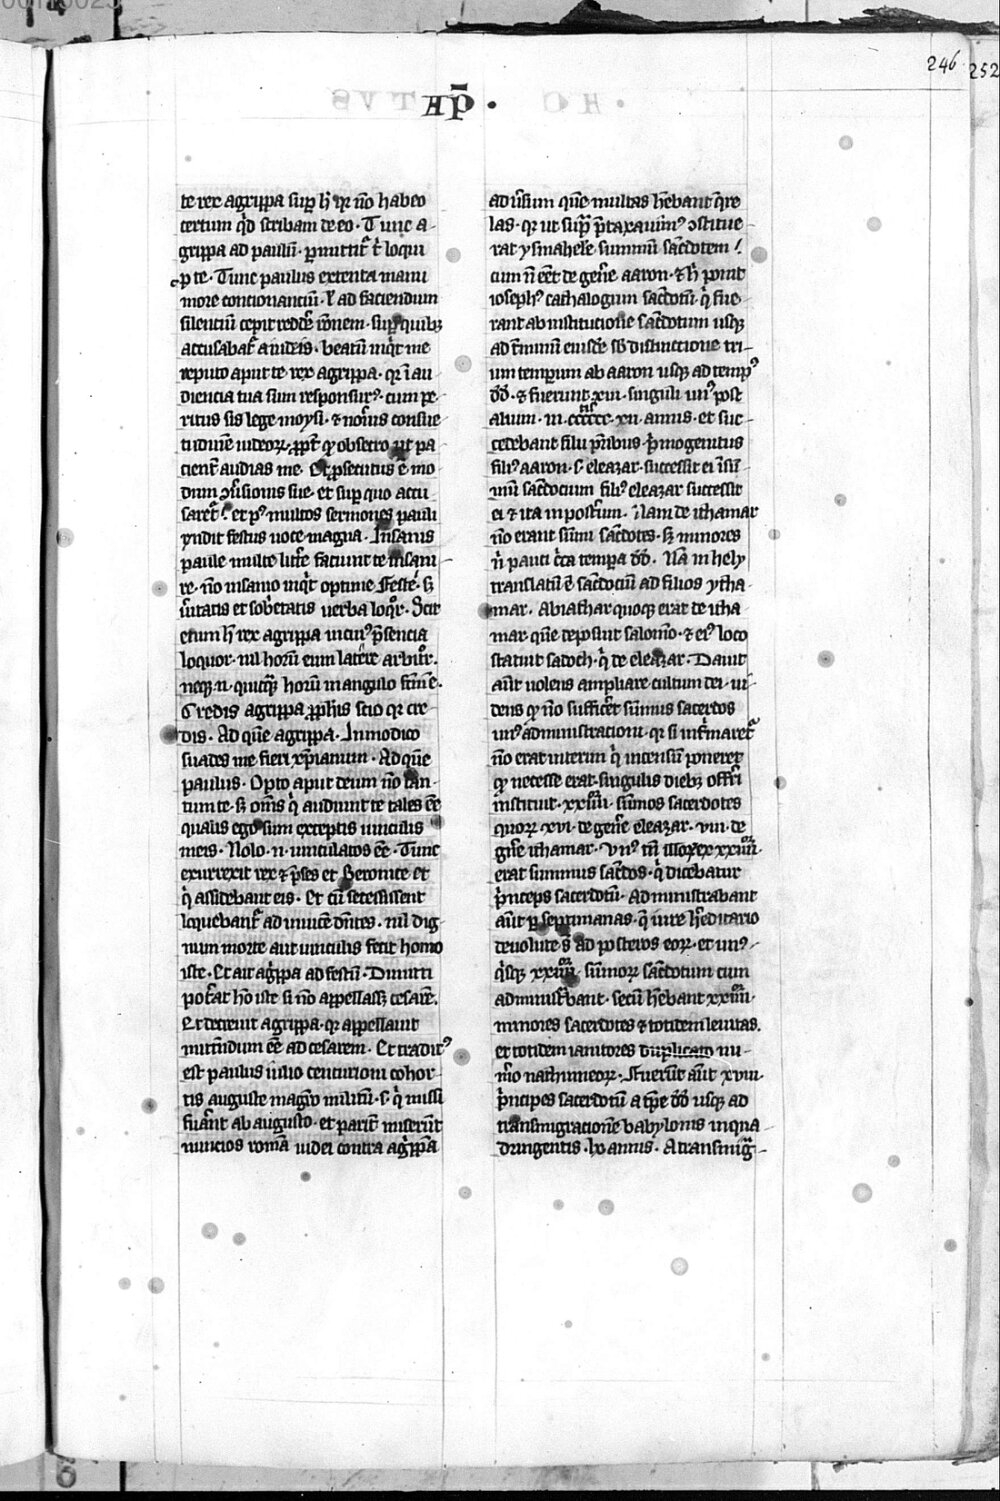 246 252
Ap̄ ·
te rex agrippa suꝑ h̓ qꝛ n̄o habeo
certum qͥd scribam de eo · Tunc a-
grippa ad paulū · ꝑmittit᷑ t̓ loqui
ꝓ te · Tunc paulus extenta manu
more concionanciū · ł ad faciendum
silenciū cepit redde᷑ rōnem · suꝑ quibꝫ
accusabat᷑ a iudeis · beatū inqͥt me
reputo aput te rex agrippa · qꝛ ī au
diencia tua sum responsurꝰ · cum pe-
ritus sis lege moysi · ⁊ nor̄ius consue
tudinē iudeoꝝ · ꝓpt᷑ qꝫ obsecro ut pa
cient᷑ audias me · Et ꝓsecutus ē mo
dum ꝯu᷑sionis sue · et suꝑ quo accu
saret᷑ · et pꝰ multos sermones pauli
rn̄dit festus uoce magna · Insanis
paule multe litt᷑e faciunt te insani
re · n̄o insanio inqͥt optime Feste · sꝫ
u᷑itatis et sob᷑etatis uerba loqͦr · Scit
enim h̓ rex agrippa in cuiꝰ p̄sencia
loquor · nil horū eum late᷑re arbit᷑or ·
neqꝫ · n · quicqͣꝫ horū in angulo fc̄m ē ·
Credis agrippa ꝓphis scio qꝛ cre-
dis · Ad quē agrippa · In modico
suades me fieri xp̄ianum · Ad quē
paulus · Opto aput deum n̄o tan-
tum te · sꝫ om̄s qͥ audiunt te tales ēē
qualis ego sum exceptis uinculis
meis · Nolo · n · uinculatos ēē · Tunc
exurrexit rex ⁊ p̄ses et Beronice et
qͥ assidebant eis · Et cū secessissent
loquebant᷑ ad inuicē dn̄tes · nil dig-
num morte aut uinculis fecit homo
iste · Et ait ag̓ppa ad festū · Dimitti
pot᷑at hō iste si n̄o appellassꝫ cesarē ·
Et decreuit agrippa · qꝛ appellauit
mittēdum ēē ad cesarem · Et traditꝰ
est paulus iulio centurioni cohor-
tis auguste magͦ militū · s · qͥ missi
fu᷑ant ab augusto · et parit᷑ miser̄ut
nuncios romā iudei contra ag̓ppā
ad u᷑sum quē multas hēbant q̄re
las · qꝛ ut supͣ p̄taxauimꝰ ꝯstitue-
rat ysmahelē summū sac̄dotem /
cum n̄ eēt de gen᷑e aaron · ⁊ h̓ ponit
iosephꝰ cathalogum sac̄dotū · qͥ fue-
rant ab institucione sac̄dotum usqꝫ
ad t᷑minū eiusdē sb̄ distinctione tri-
um tempum ab aaron usqꝫ ad tempꝰ
dd̄ · ⁊ fuerunt xiii · singuli unꝰ post
alium · in · cccccc · xii · annis · et suc-
cedebant filii pr̄ibus · p̄mogenitus
filiꝰ aaron · s · eleazar · successit ei ī sū
mū sac̄docium filiꝰ eleazar successit
ei ⁊ ita in post᷑um · Nam de ithamar
n̄o erant sūmi sac̄dotes · sꝫ minores
n̄ pauci c᷑ca tempa dd̄ · Nā in hely
translatū ē sac̄dociū ad filios ytha-
mar · Abiathar quoqꝫ erat de itha
mar · quē deposuit salomō · ⁊ eiꝰ loco
statuit sadoch · qͥ de eleazar · Dauit
aūt uolens ampliare cultum dei · ui-
dens qꝫ n̄o suffice᷑t sūmus sacerdos
unꝰ administracioni · qꝛ si infirmaret᷑
n̄o erat interim qͥ incensū poneret
qꝫ necesse erat singulis diebꝫ offe᷑ri
instituit · xxiiii · sūmos sacerdotes
quoꝝ xvi · de gen᷑e eleazar · viii · de
gn̄e ithamar · Vnꝰ tn̄ illoꝝ ex xxiiii ·
erat summus sac̄dos · qͥ dicebatur
p̄nceps sacerdotū · Administrabant
aūt ꝑ septimanas · q̄ iure h᷑editario
deuolute sūt ad posteros eoꝝ · et unꝰ-
qͥsqꝫ xxiiii · sūmoꝝ sac̄dotum cum
administ᷑bant · secū hēbant xxiiii ·
minores sacerdotes ⁊ totidem leuitas ·
et totidem ianitores duplicato nu-
m᷑o nathinneoꝝ · Fuer̄ut aūt xviii ·
p̄ncipes sacerdotū a tp̄e dd̄ usqꝫ ad
transmigracionē babylonis in qua-
dringentis · lv annis · A transmigͣ-